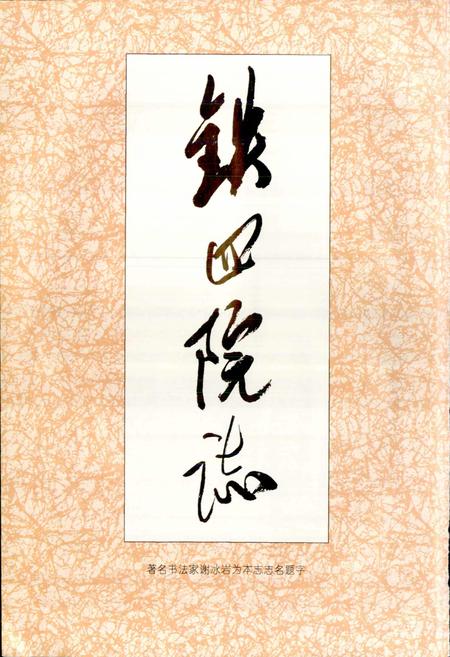 鉄四院誌
著名书法家谢冰岩为本志志名题字